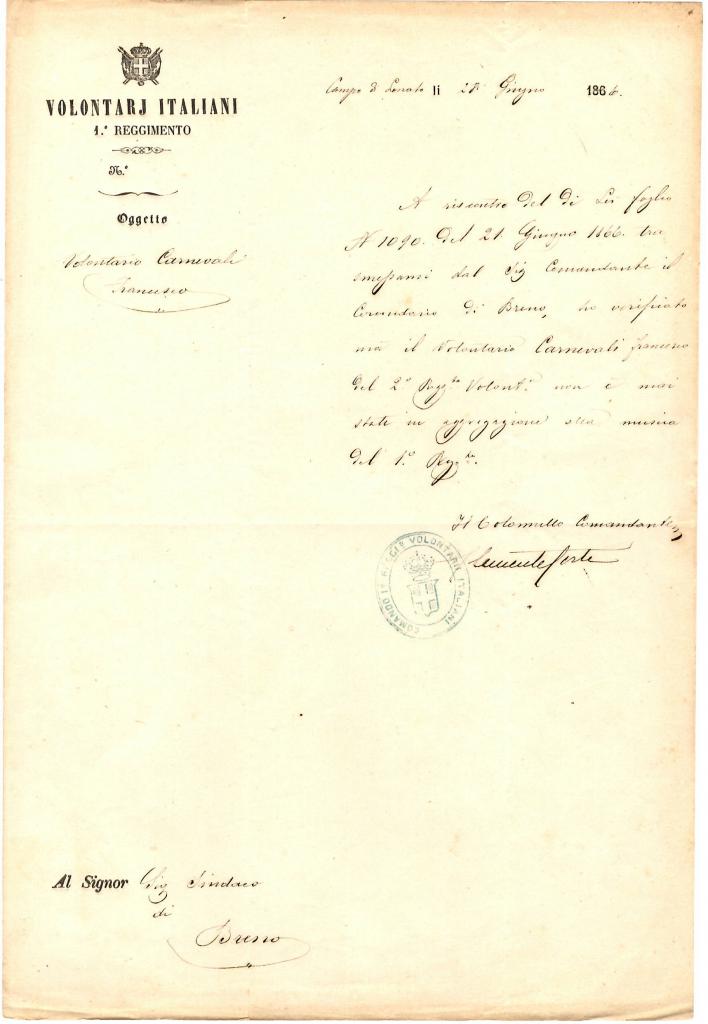 VOLONTARJ ITALIANI
1.º REGGIMENTO
N.º
Oggetto
Volontario Carnevali
Francesco
Campo di Lonato li Giugno 1866.
A riscontro del di Lei foglio
N 1090. del 21. Giugno 1866. tra
smessami dal Sig Comandante il
Circondario di Breno, ho verificato
ma il Volontario Carnevali Francesco
del 2º Regg.to Volont.i non è mai
stato in aggregazione alla musica
del 1.º Regg.to.
Il Colonnello Comandante
Clemente Corte
COMANDO 1º REGG.º VOLONTARII ITALIANI
Al Signor Sig Sindaco
di
Breno